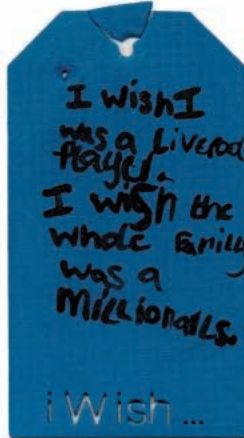 I wish I
was a Liverpool
Player.
I wish the
whole family
was a
Millionaires.
i Wish ...